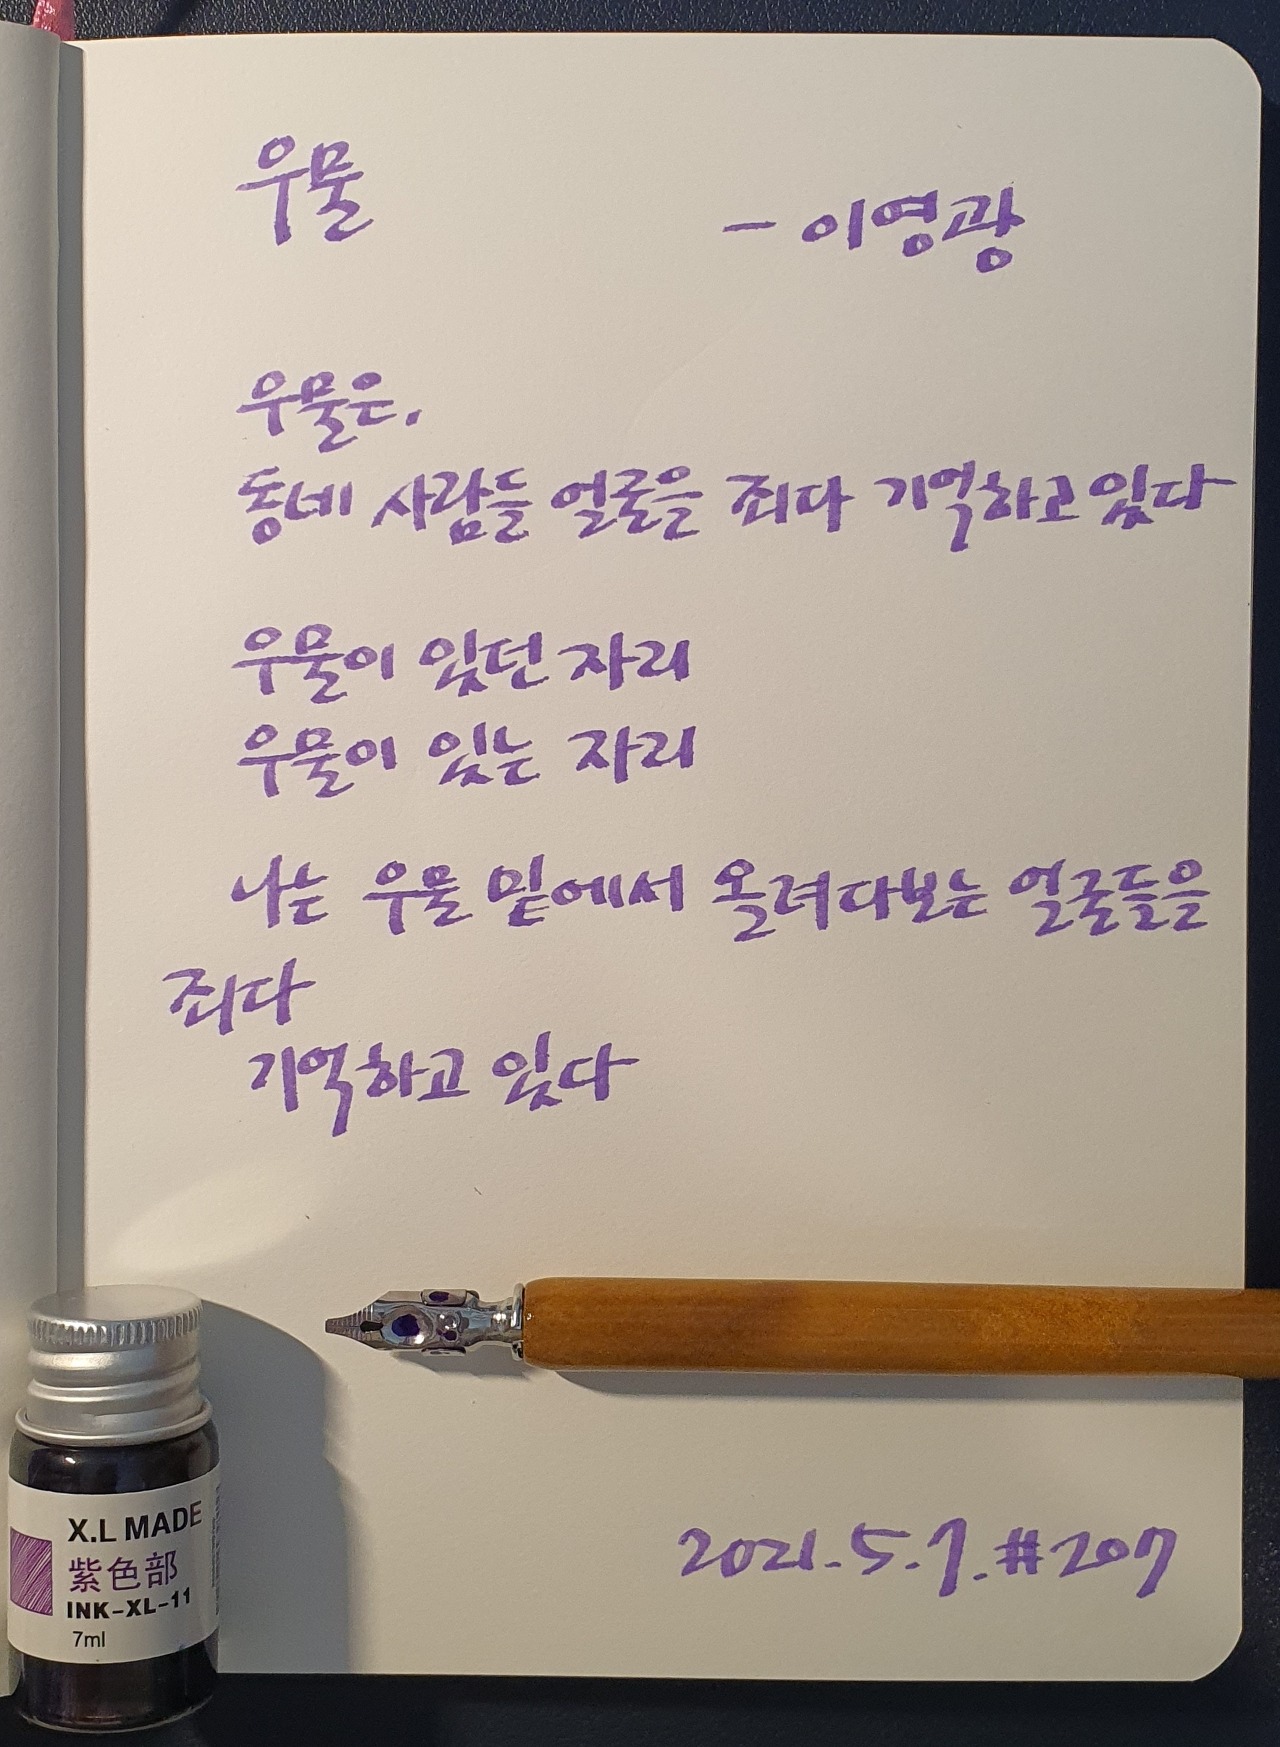 우물
- 이영광
우물은,
동네 사람들 얼굴을 죄다 기억하고 있다
우물이 있던 자리
우물이 있는 자리
나는 우물 밑에서 올려다보는 얼굴들을
죄다
기억하고 있다
X.L MADE
紫色部
INK-XL-11
7ml
2021.5.7.#207